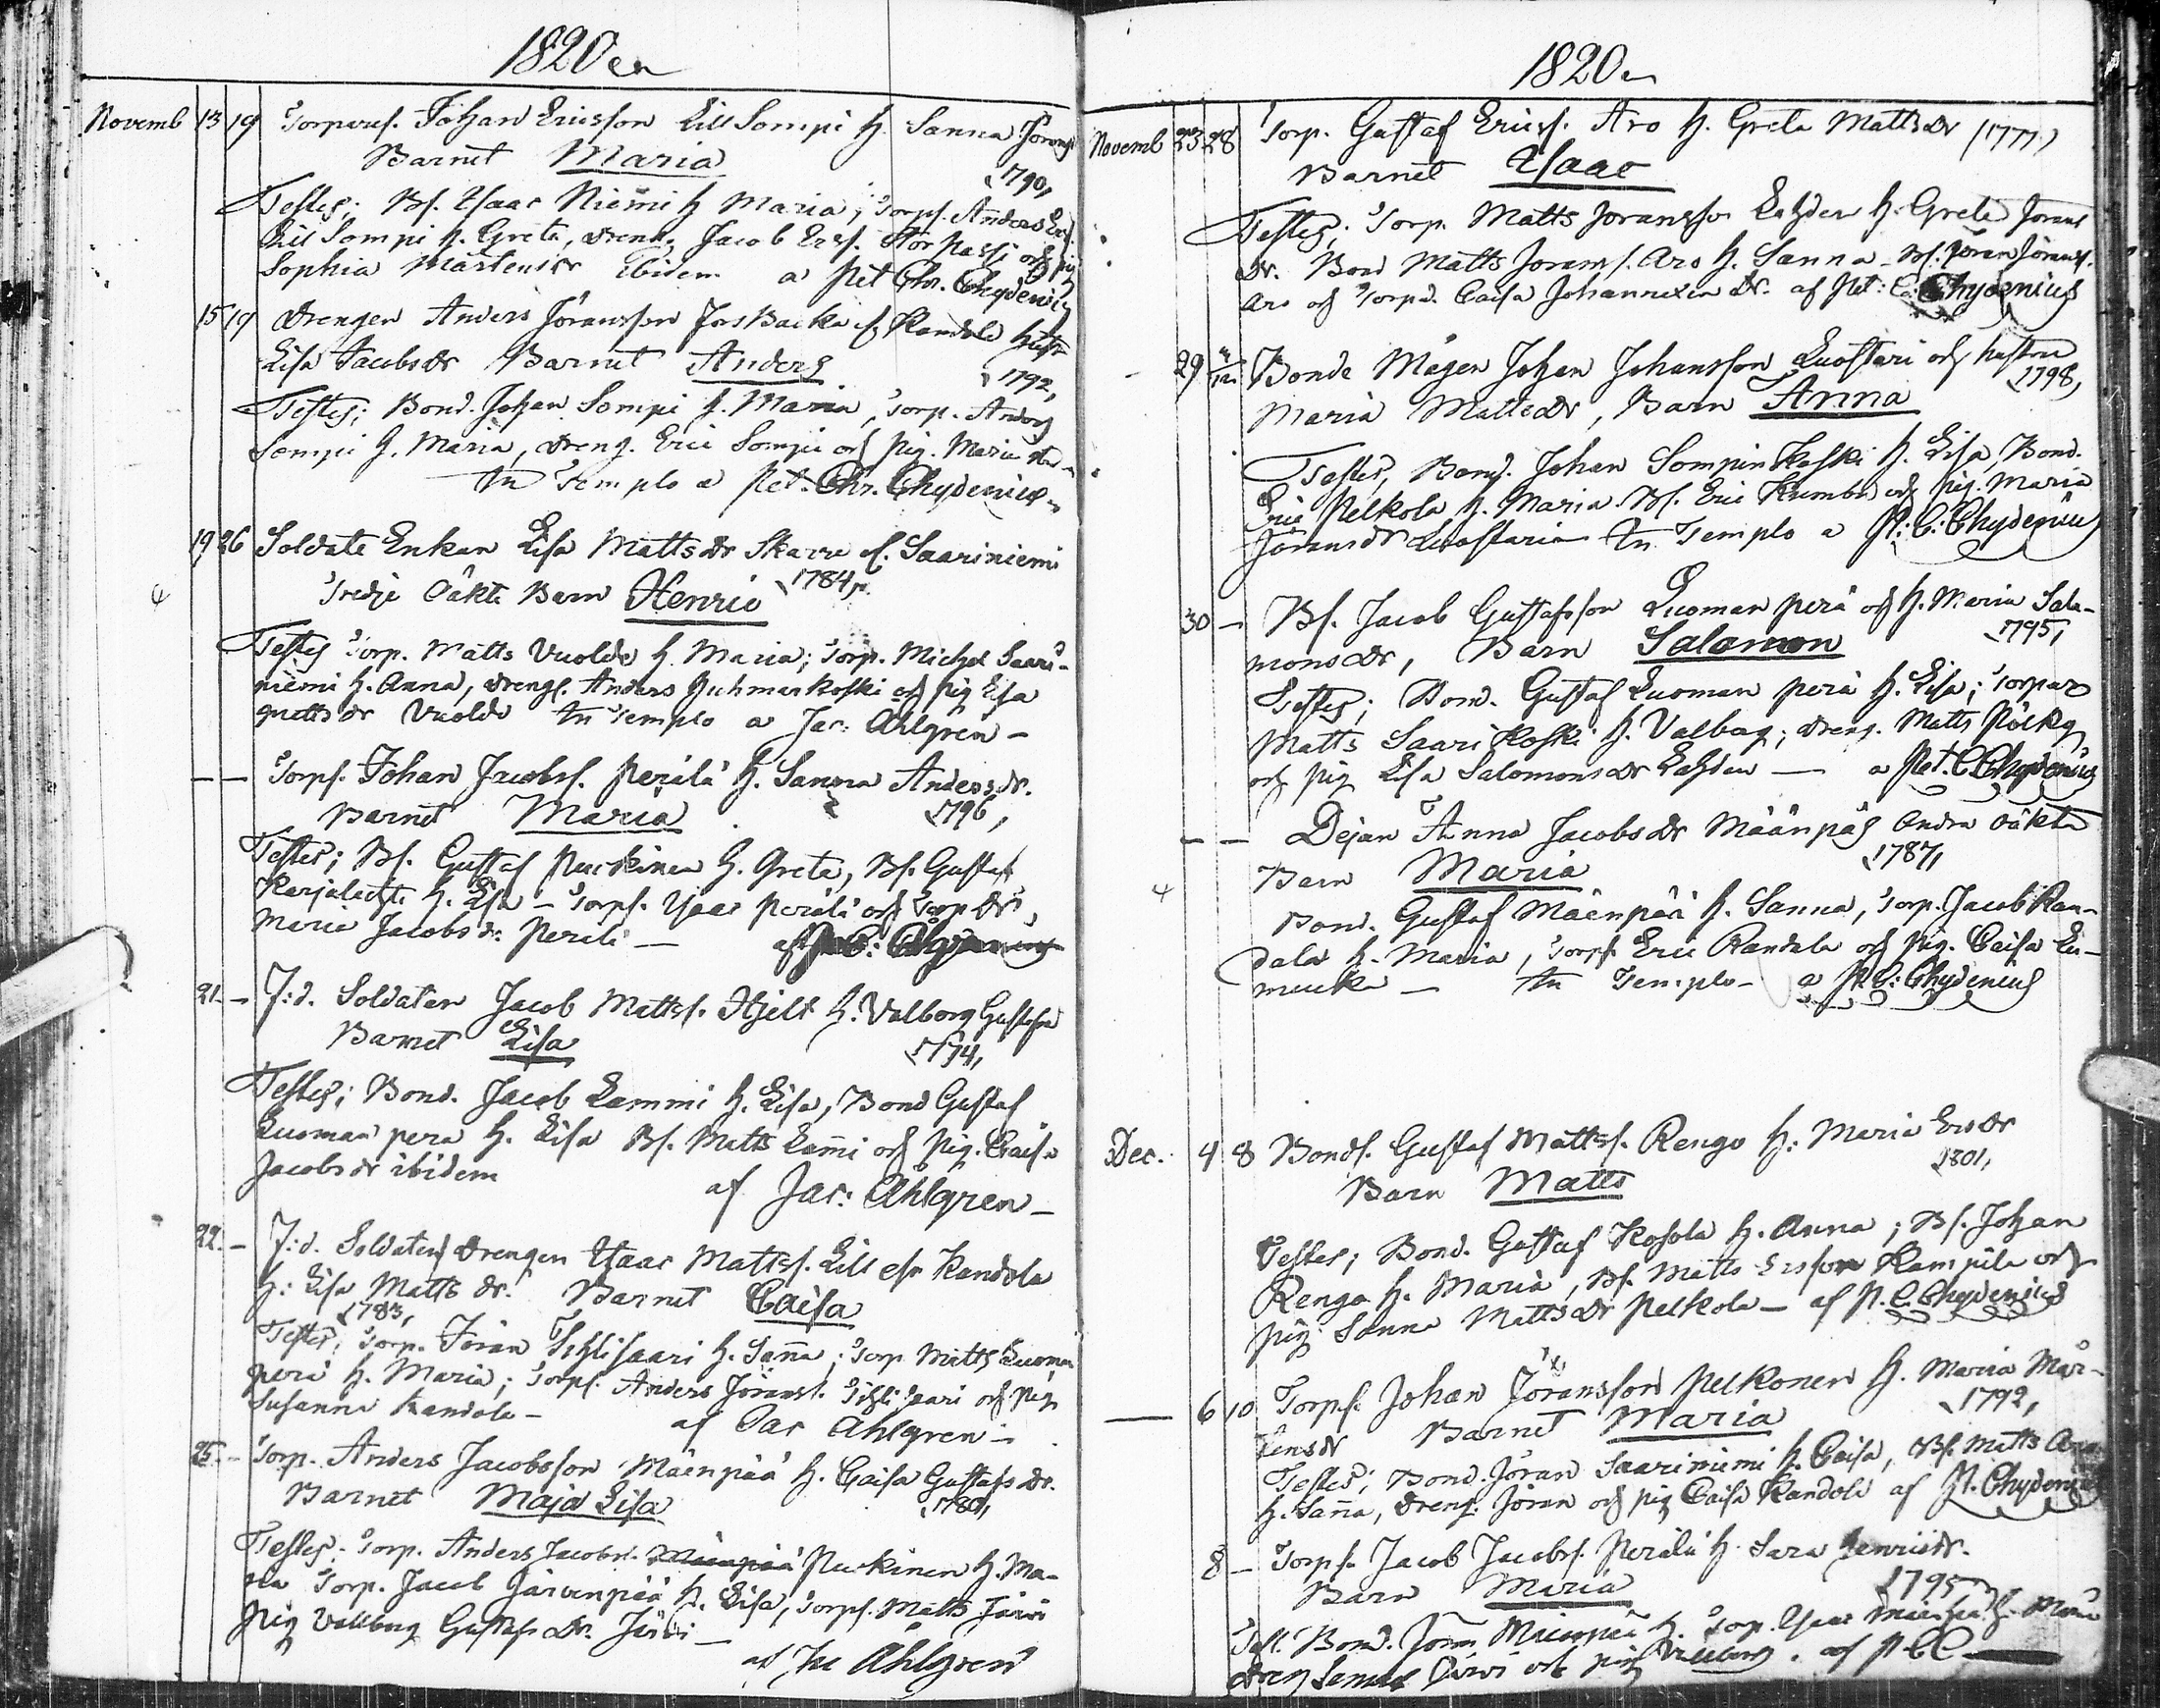 1820 en
Novemb 13 19 Torparef. Johan Ericsson Lill Sompi h. Sanna Jörans
Barnet Maria 1790,
Testes; Bf. Isaac Niemi h Maria; Torpf. Anders Ers.
Lill Sompi h. Greta, dreng. Jacob Ersf. Stor Passi och pig
Sophia Mårtensdr ibidem a Pet Chr. Chydenius
15 19 Drengen Anders Jöransson JossBacka el. Kandola hustr
Lisa Jacobsdr Barnet Anders 1792,
Testes; Bond. Johan Sompi h. Maria, Torp. Anders
Sompi h. Maria, dreng. Eric Sompi och pig. Maria
In Templo a Pet. Chr. Chydenius
19 26 Soldate Enkan Lisa Mattsdr Skarre el. Saariniemi
Tredje Oäkta Barn Henric 1784,
Testes Torp. Matts Vuolde h. Maria; Torp. Michel Saari-
niemi h. Anna, drengf. Anders Juhmarkoski och pig Lisa
Mattsdr Vuolde In Templo a Jac: Ahlgren –
– – Torpf. Johan Jacobsf. Perälä h. Sanna Andersdr.
Barnet Maria 1796,
Testes; Bf. Gustaf Purkinen h. Greta, Bf. Gustaf
Karjalachti h. Lisa – Torpf. Isaac Perälä och Torp dr,
Maria Jacobsdr. Perälä – af
21 – F:d. Soldaten Jacob Mattsf. Hjelt h. Valborg Gustafsd
Barnet Lisa 1794,
Testes; Bond. Jacob Lammi h. Lisa, Bond Gustaf
Luoman perä h. Lisa Bf. Matts Lam̄i och pig. Caisa
Jacobsdr ibidem af Jac: Ahlgren –
22 – F:d. Soldaten drengen Isaac Mattsf. Lill el Kandola
h: Lisa Mattsdr. Barnet Caisa
1783,
Testes; Torp. Jöran Ichlisaari h. San̄a; Torp Matts Luoman
perä h. Maria; Torpf. Anders Jöransf. Ichlisaari och pig
Susanna Kandola – af Jac Ahlgren –
25 – Torp. Anders Jacobsson Mäenpää h. Caisa Gustafsdr.
Barnet Maja Lisa 1780,
Testes; Torp. Anders Jacobsf. Mäenpää Purkinen h. Ma-
ria Torp. Jacob Järvenpää h. Lisa, Torpf. Matts Järvi
pig Vallborg Gustafsdr. Järvi –
af Jac Ahlgren
1820 en
Novemb 23 28 Torp. Gustaf Ericsf. Aro h. Greta Mattsdr (1777,)
Barnet Isaac
Testes; Torp. Matts Jöransson Lahden h. Greta Jörans
dr. Bond Matts Joransf. Aro h. Sanna – Bf. Jöran Jöransf.
Aro och Torpd. Caisa Johannixen dr. af Pet: C. Chydenius
– 29 4/12 Bonde Mågen Johan Johansson Luostari och hustru
Maria Mattsdr, Barn Anna 1798,
Testes, Bond. Johan Sompin Koski h. Lisa, Bond.
Eric Pelkola h. Maria Bf. Eric Kumba och pig. Maria
Jöransdr Luostari – In Templo a P: C: Chydenius
30 – Bf. Jacob Gustafsson Luoman perä och h. Maria Salo-
monsdr, Barn Salomon 1795,
Testes; Bond. Gustaf Luoman perä h. Lisa; Torpar
Matts Saari Koski h. Valborg; dreng. Matts Pölky
och pig Lisa Salomonsdr Lahden – a Pet. C Chydenius
– – Dejan Anna Jacobsdr Määnpäs Andra Oäkta
Barn Maria 1787,
Bond. Gustaf Mäenpää h. Sanna, Torp. Jacob Kan-
dola h. Maria, Torpf. Eric Kandola och pig. Caisa Lu-
mukka – In Templo – a P. C: Chydenius
Dec. 4 8 Bondf. Gustaf Mattsf. Rengo h: Maria Ersdr
Barn Matts 1801,
Testes; Bond. Gustaf Kosola h. Anna; Bf. Johan
Rengo h. Maria, Bf. Matts Ersson Kampila och
pig. Sanna Mattsdr Pelkola – af P. C. Chydenius
– 6 10 Torpf. Johan Jöransson Pelkonen h. Maria Mår-
tensdr Barnet Maria 1792,
Testes; Bond. Jöran Saariniemi h. Caisa, Bf. Matts
h. San̄a, dreng. Jöran och pig Caisa Kandola af P. Chydenius
8 – Torpf. Jacob Jacobsf. Perälä h. Sara Henricsdr.
Barn Maria 1795
Test. Bond. Jöran h. Torp. Isaac h. Maria
dreng Samuel Järvi och pig Vallborg . af P C C